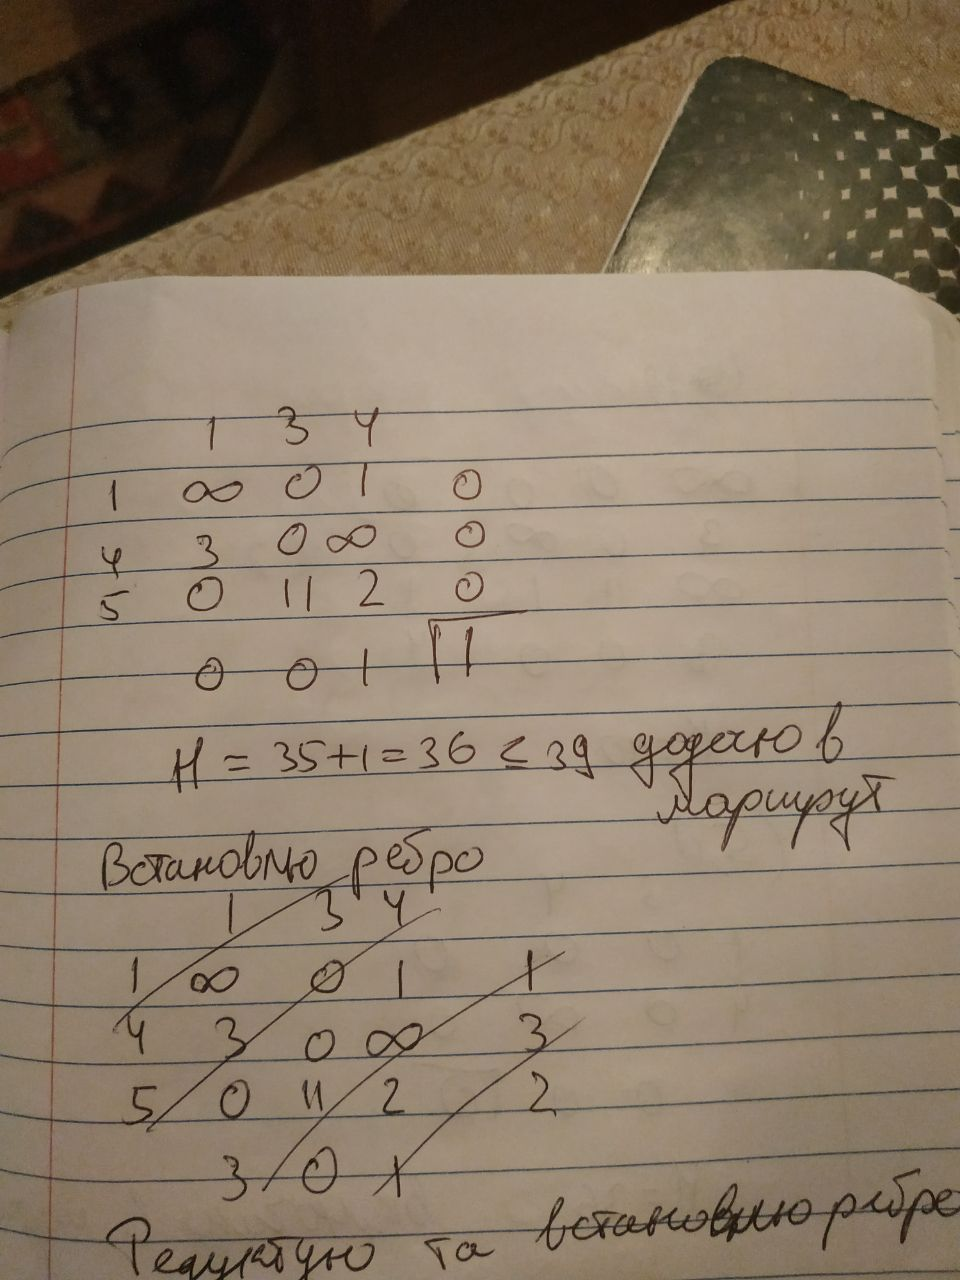 1 3 4
1 ∞ 0 1 0
4 3 0 ∞ 0
5 0 11 2 0
0 0 1 1
H = 35+1 = 36 ≤ 39 додаю в
маршрут
Встановлю ребро
1 3 4
1 ∞ 0 1 1
4 3 0 ∞ 3
5 0 11 2 2
3 0 1
Редуктую та встановлю ребро